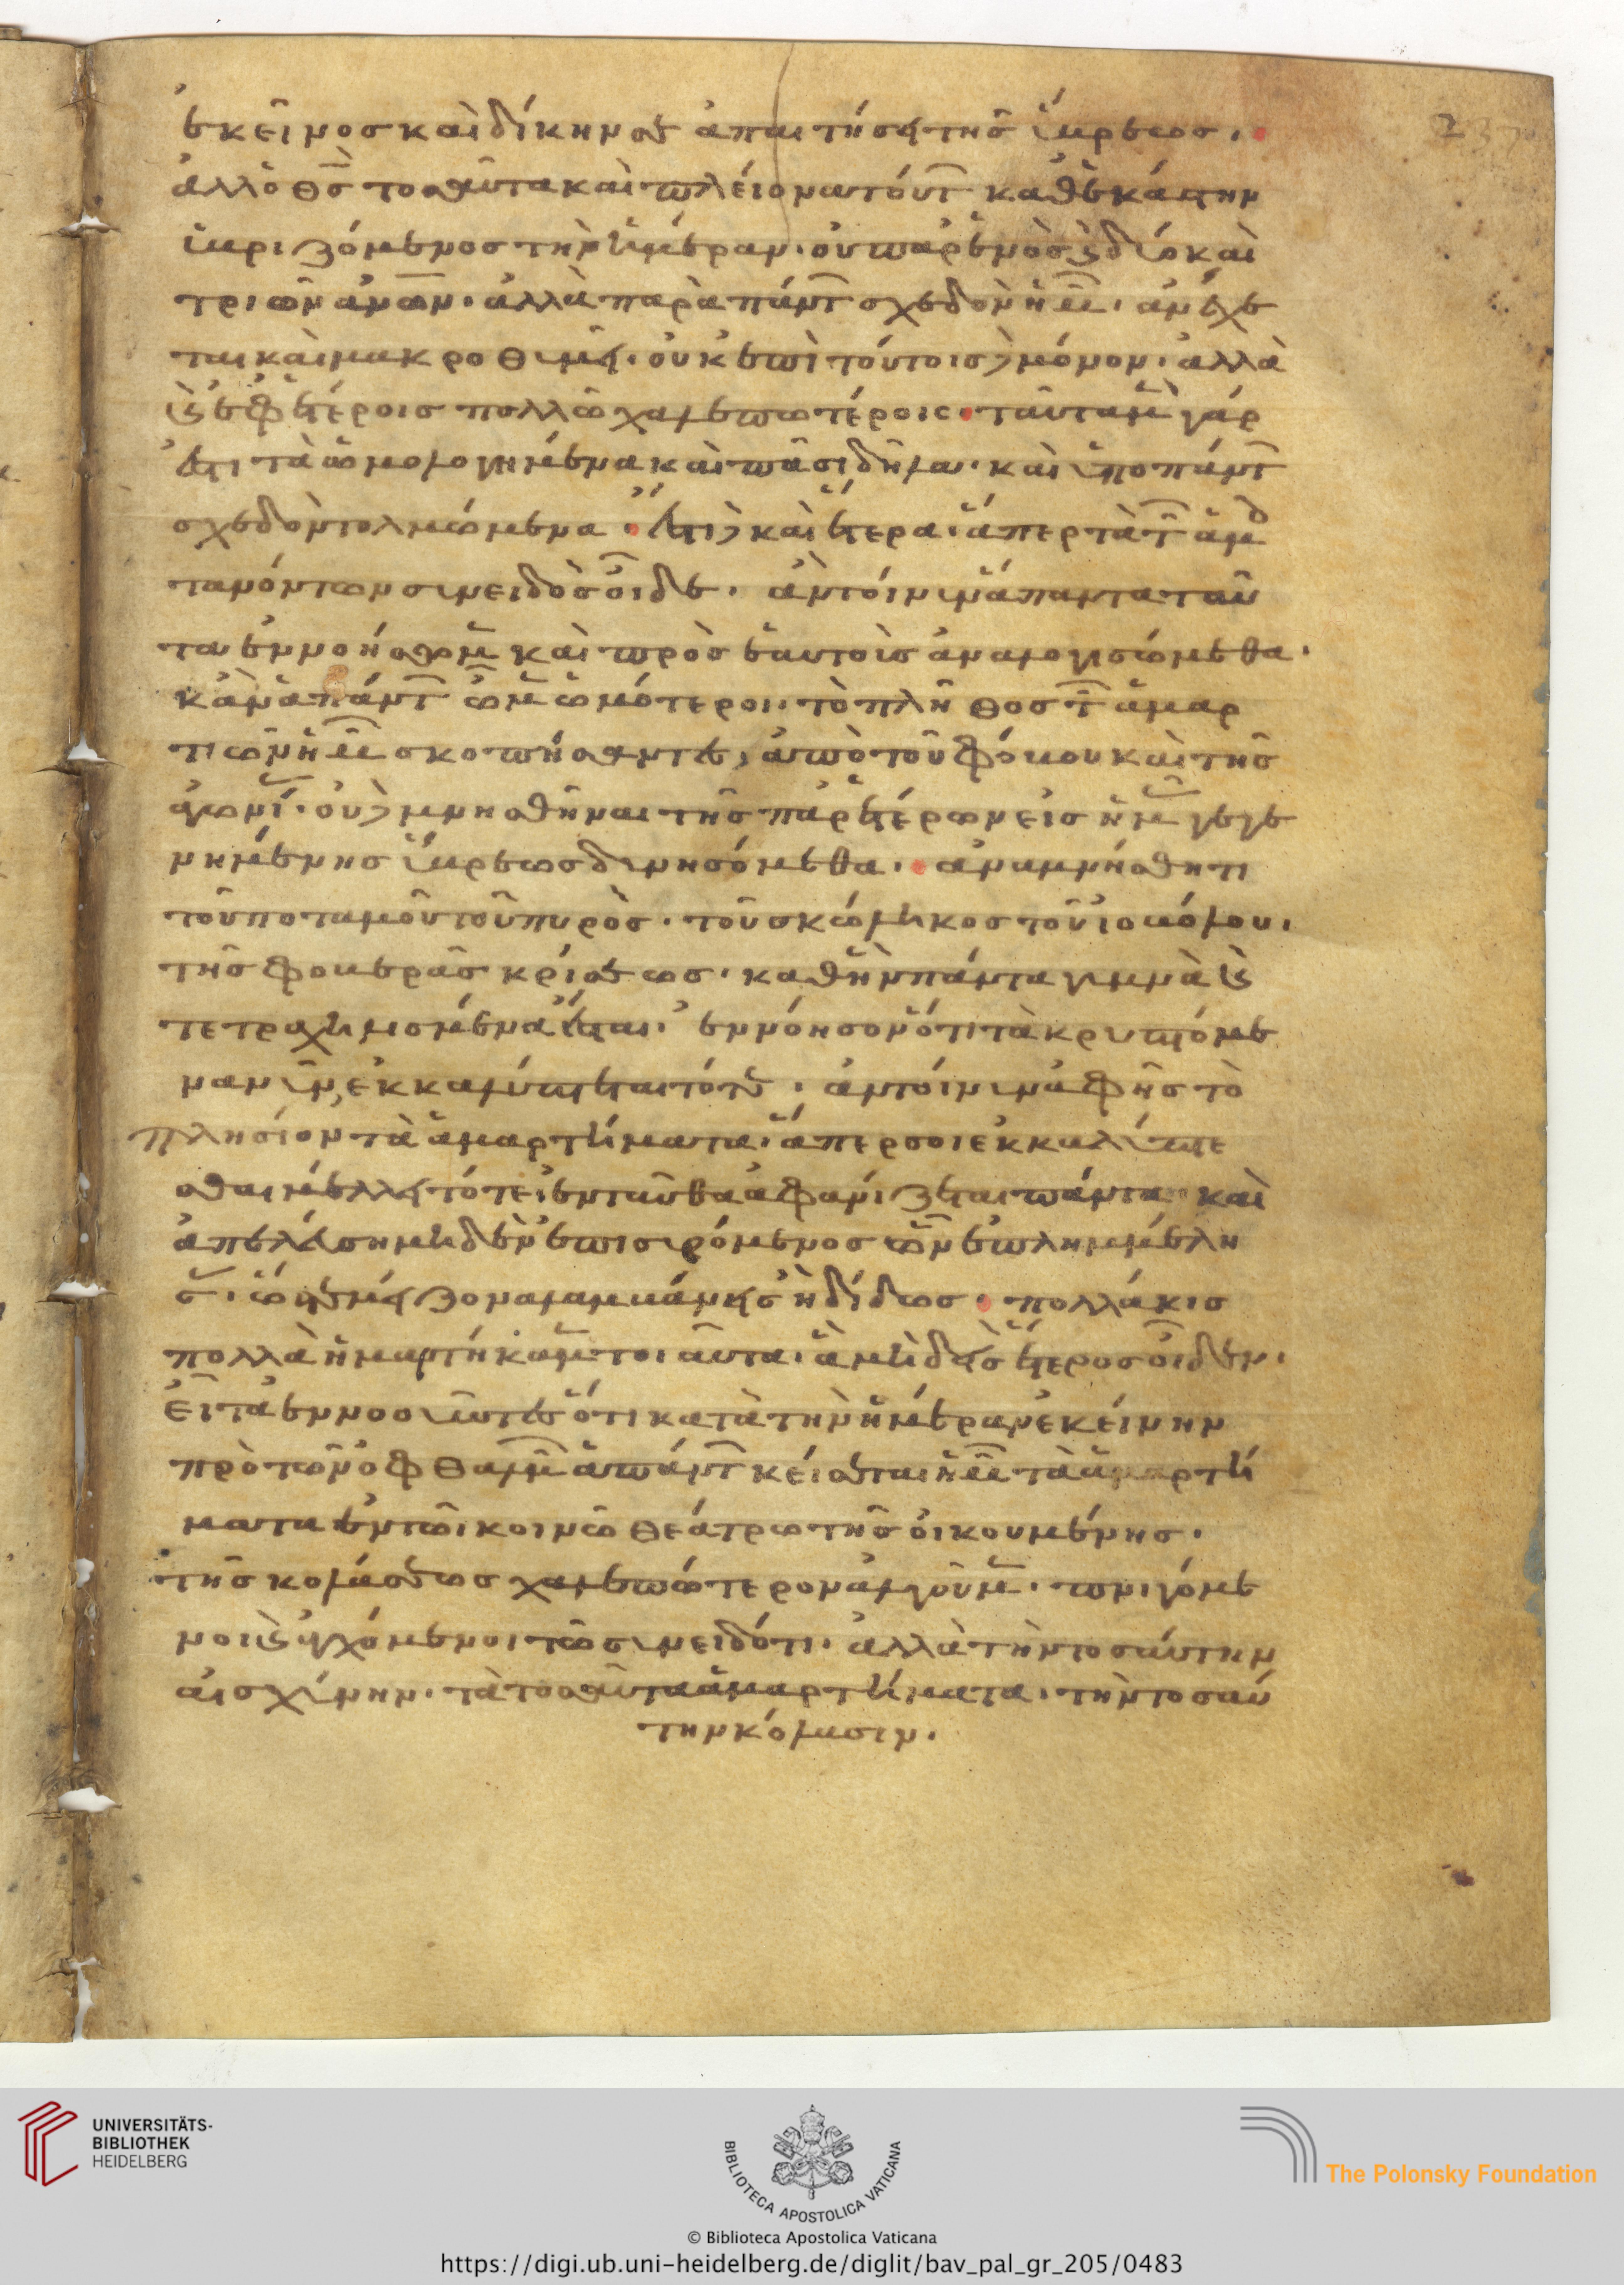 237
ἐκεῖνος καὶ δίκην σε ἀπαιτήσῃ τῆς ὕβρεως.
ἀλλ ὁ θς τοσαῦτα καὶ πλείονα τούτ καθ ἑκάστην
ὑβριζόμενος τὴν ἡμέραν. οὐ παρ ἑνὸς ἢ δύο καὶ
τριῶν ἀνων. ἀλλὰ παρὰ πάντ σχεδὸν ἡμ. ἀνέχε
ται καὶ μακροθυμεῖ. οὐκ ἐπὶ τούτοις μόνον. ἀλλὰ
καὶ ἐφ ἑτέροις πολλῶ χαλεπωτέροις. ταῦτα μὲν γάρ
ἐστι τὰ ὡμολογημένα καὶ πᾶσι δῆλα. καὶ ὑπὸ πάντ
σχεδὸν τολμώμενα. ἔστι καὶ ἕτερα. ἅπερ τὸ τ ἁμαρ
τανόντων συνειδὸς οἶδε. ἂν τοίνυν ἅπαντα ταῦ
τα ἐννοήσωμεν καὶ πρὸς ἑαυτοὺς ἀναλογισώμεθα.
κἂν ἁπάντ ὦμεν ὠμότεροι. τὸ πλῆθος τ ἁμαρ
τιῶν ἡμ σκοπήσαντες, ἀπὸ τοῦ φόβου καὶ τῆς
ἀγωνί. οὐ μνησθῆναι τῆς παρ ἑτέρων εἰς ἡμ γεγε
νημένης ὕβρεως δυνησόμεθα. ἀναμνήσθητι
τοῦ ποταμοῦ τοῦ πυρὸς. τοῦ σκώληκος τοῦ ἰοβόλου.
τῆς φοβερᾶς κρίσεως. καθ ἣν πάντα γυμνὰ καὶ
τετραχηλισμένα ἔσται. ἐννόησον ὅτι τὰ κρυπτόμε
να νῦν, ἐκκαλύπτεται τότε. ἂν τοίνυν ἀφῇς τῶ
πλησίον τὰ ἁμαρτήματα. ἅπερ σοι ἐκκαλύπτε
σθαι μέλλει τότε, ἐνταῦθα ἀφανίζεται πάντα. καὶ
ἀπελεύση μηδὲν ἐπισυρόμενος ὧν ἐπλημμέλη
σ. ὥστε μεῖζον λαμβάνεις ἢ δίδως. πολλάκις
πολλὰ ἡμαρτήκαμεν τοιαῦτα. ἃ μηδεὶς ἕτερος οἶδεν.
εἶτα ἐννοοῦντες ὅτι κατὰ τὴν ἡμέραν ἐκείνην
πρὸ τῶν ὀφθαλμ ἁπάντ κείσεται ἡμ τὰ ἁμαρτή
ματα ἐν τῶι κοινῶ θεάτρω τῆς οἰκουμένης.
τῆς κολάσεως χαλεπώτερον ἀλγοῦμεν. πνιγόμε
νοι καὶ ἀγχόμενοι τῶ συνειδότι. ἀλλὰ τὴν τοσαύτην
αἰσχύνην. τὰ τοσαῦτα ἁμαρτήματα. τὴν τοσαύ
την κόλασιν.
UNIVERSITÄTS-
BIBLIOTHEK
HEIDELBERG
BIBLIOTECA APOSTOLICA VATICANA
The Polonsky Foundation
© Biblioteca Apostolica Vaticana
https://digi.ub.uni-heidelberg.de/diglit/bav_pal_gr_205/0483